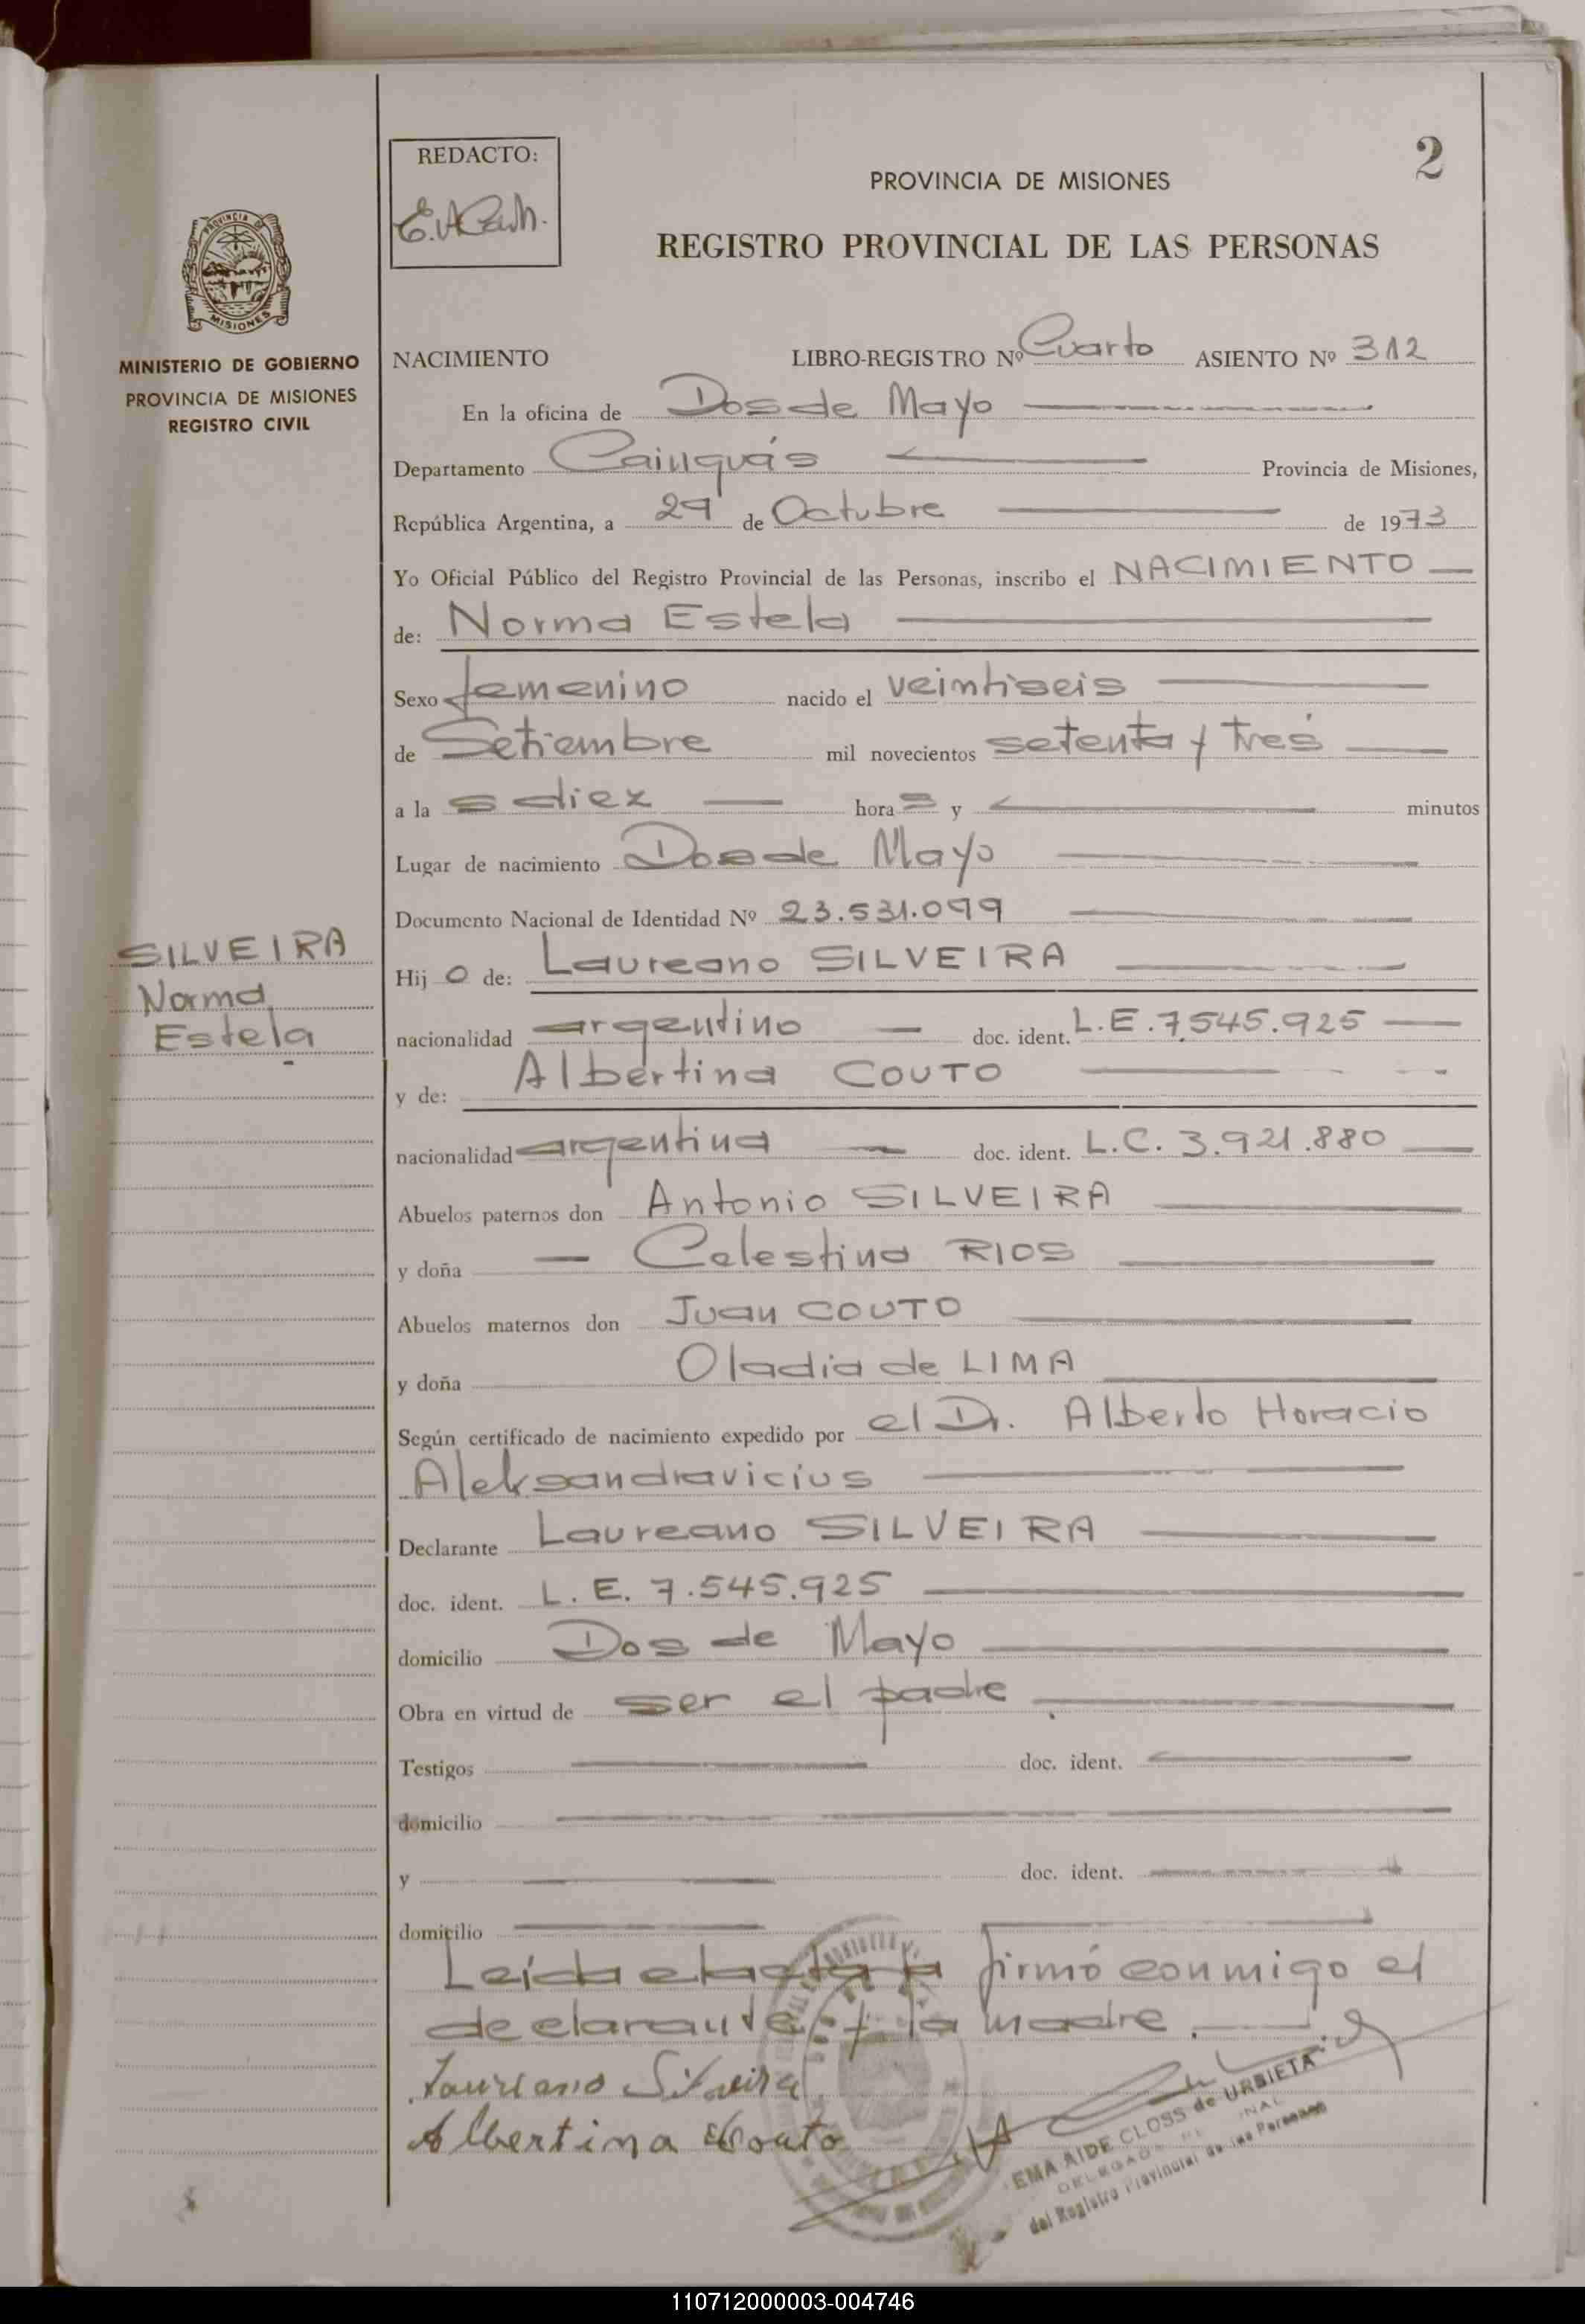 2
REDACTO:
PROVINCIA DE MISIONES
REGISTRO PROVINCIAL DE LAS PERSONAS
PROVINCIA DE
MISIONES
MINISTERIO DE GOBIERNO
PROVINCIA DE MISIONES
REGISTRO CIVIL
NACIMIENTO LIBRO-REGISTRO Nº Cuarto ASIENTO Nº 312
En la oficina de Dos de Mayo
Departamento Cainguás Provincia de Misiones,
República Argentina, a 29 de Octubre de 1973
Yo Oficial Público del Registro Provincial de las Personas, inscribo el NACIMIENTO
de: Norma Estela
Sexo femenino nacido el veintiseis
de Setiembre mil novecientos setenta y tres
a la s diez hora s y minutos
Lugar de nacimiento Dos de Mayo
Documento Nacional de Identidad Nº 23.531.099
SILVEIRA
Norma
Estela
Hij o de: Laureano SILVEIRA
nacionalidad argentino doc. ident. L.E. 7.545.925
y de: Albertina COUTO
nacionalidad argentina doc. ident. L.C. 3.921.880
Abuelos paternos don Antonio SILVEIRA
y doña Celestina RIOS
Abuelos maternos don Juan COUTO
y doña Oladia de LIMA
Según certificado de nacimiento expedido por el Dr. Alberto Horacio
Aleksandravicius
Declarante Laureano SILVEIRA
doc. ident. L. E. 7.545.925
domicilio Dos de Mayo
Obra en virtud de ser el padre
Testigos doc. ident.
domicilio
y doc. ident.
domicilio
Leida el acta la firmó conmigo el
declarante y la madre.
Laureano Silveira
Albertina Couto
EMA AIDE CLOSS de URBIETA
del Registro Provincial de las Personas
110712000003-004746